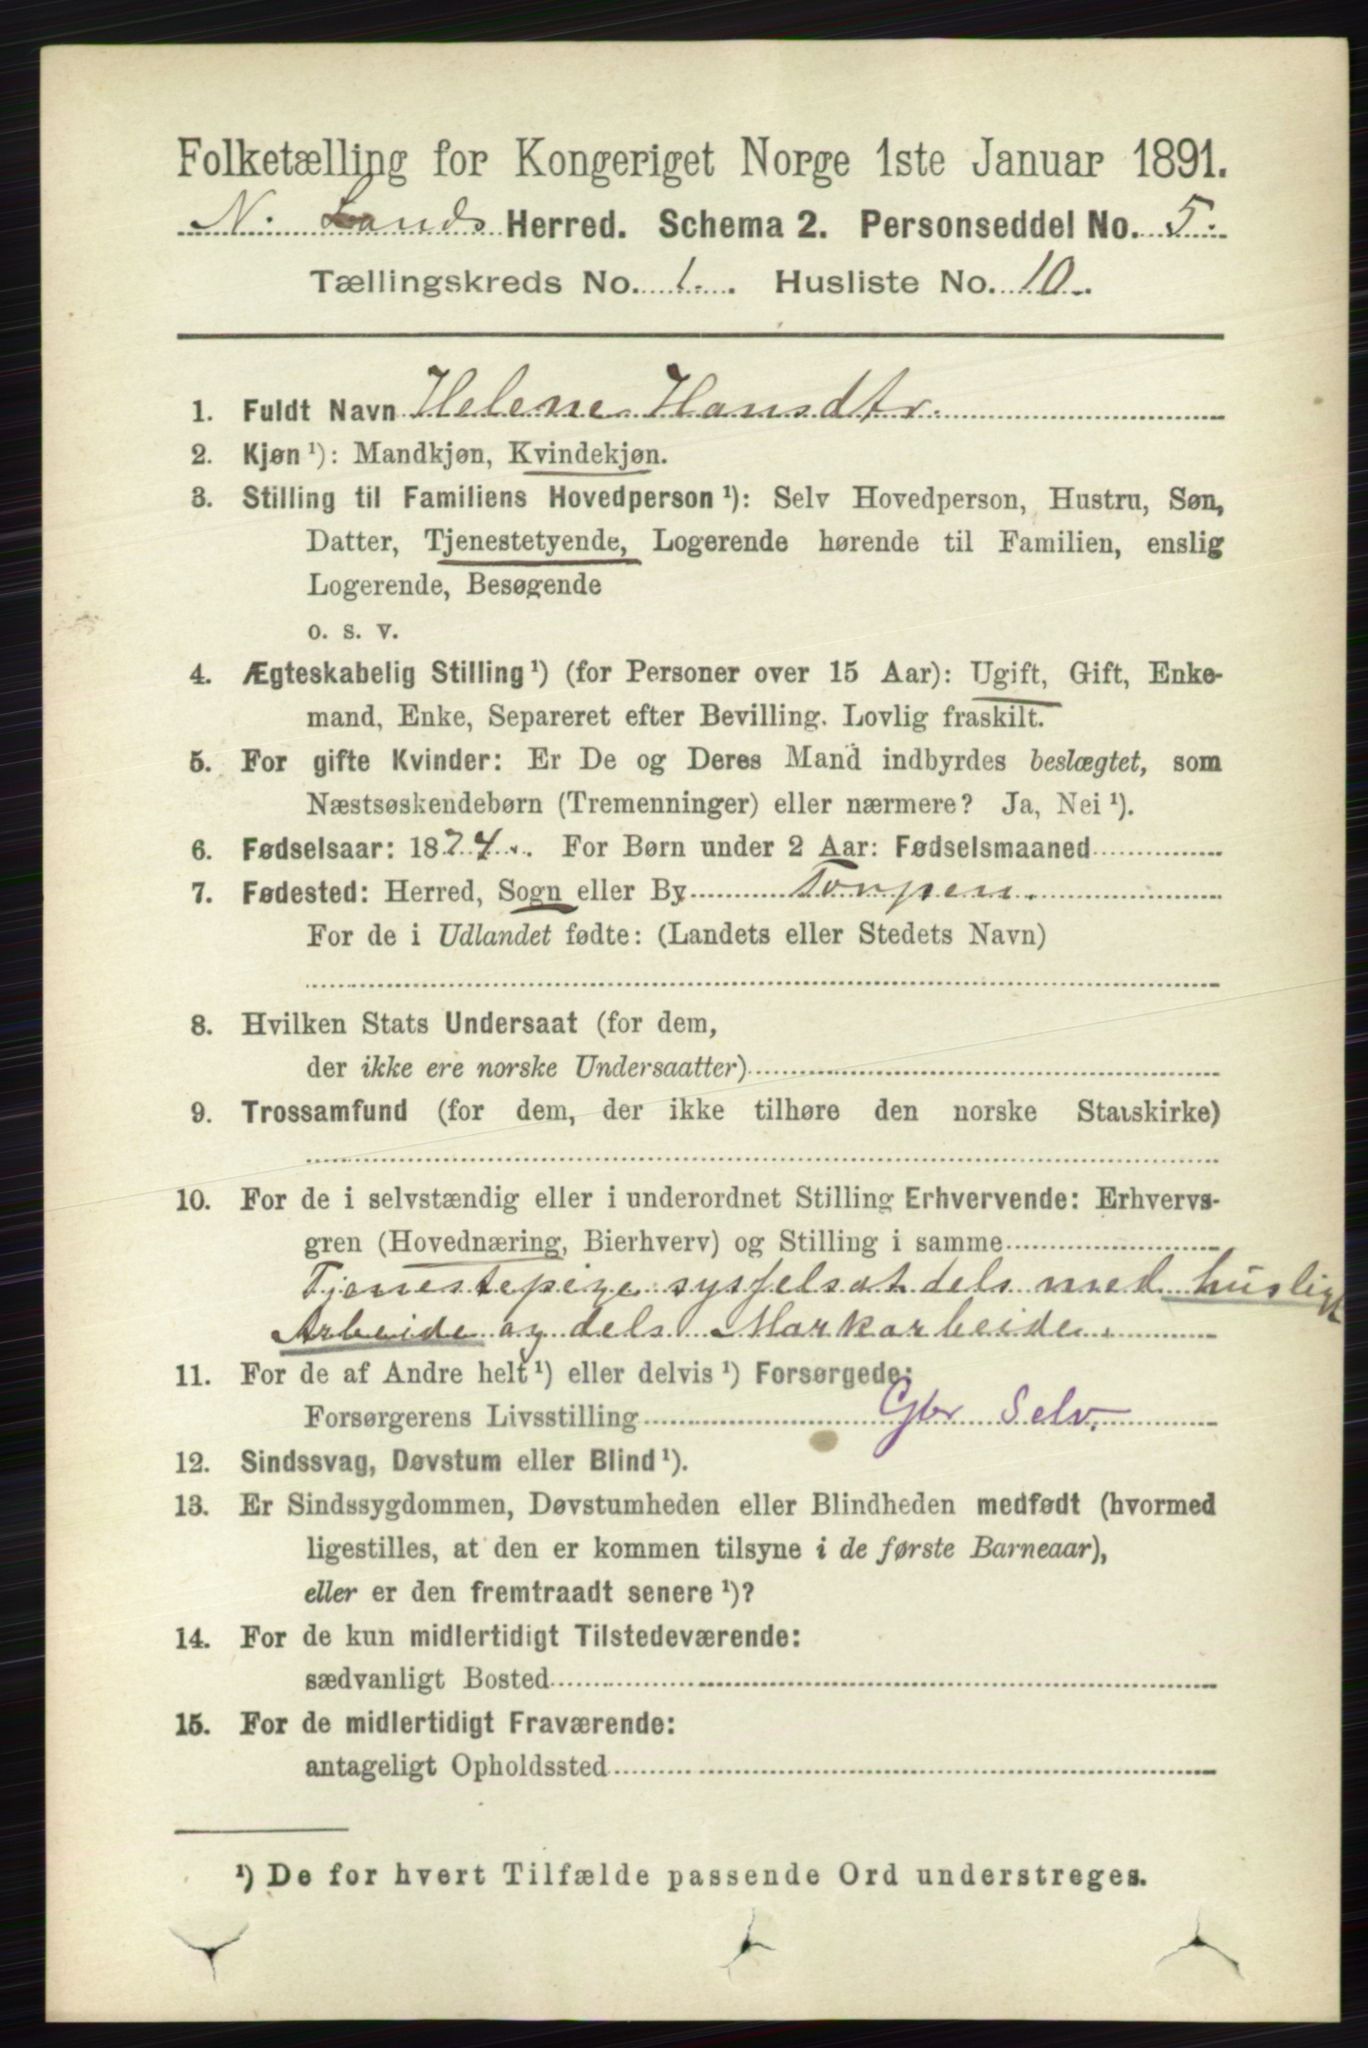 Folketælling for Kongeriget Norge 1ste Januar 1891.
N. Lands Herred. Schema 2. Personseddel No. 5.
Tællingskreds No. 1. Husliste No. 10.
1. Fuldt Navn Helene Hansdtr.
2. Kjøn ¹): Mandkjøn, Kvindekjøn.
3. Stilling til Familiens Hovedperson ¹): Selv Hovedperson, Hustru, Søn,
Datter, Tjenestetyende, Logerende hørende til Familien, enslig
Logerende, Besøgende
o. s. v.
4. Ægteskabelig Stilling ¹) (for Personer over 15 Aar): Ugift, Gift, Enke-
mand, Enke, Separeret efter Bevilling. Lovlig fraskilt.
5. For gifte Kvinder: Er De og Deres Mand indbyrdes beslægtet, som
Næstsøskendebørn (Tremenninger) eller nærmere? Ja, Nei ¹).
6. Fødselsaar: 1874. For Børn under 2 Aar: Fødselsmaaned
7. Fødested: Herred, Sogn eller By Torpen.
For de i Udlandet fødte: (Landets eller Stedets Navn)
8. Hvilken Stats Undersaat (for dem,
der ikke ere norske Undersaatter)
9. Trossamfund (for dem, der ikke tilhøre den norske Statskirke)
10. For de i selvstændig eller i underordnet Stilling Erhvervende: Erhvervs-
gren (Hovednæring, Bierhverv) og Stilling i samme
Tjenestepige sysselsat dels med husligt
Arbeide og dels Markarbeide.
11. For de af Andre helt ¹) eller delvis ¹) Forsørgede:
Forsørgerens Livsstilling Gbr Selv.
12. Sindssvag, Døvstum eller Blind ¹).
13. Er Sindssygdommen, Døvstumheden eller Blindheden medfødt (hvormed
ligestilles, at den er kommen tilsyne i de første Barneaar),
eller er den fremtraadt senere ¹)?
14. For de kun midlertidigt Tilstedeværende:
sædvanligt Bosted
15. For de midlertidigt Fraværende:
antageligt Opholdssted
¹) De for hvert Tilfælde passende Ord understreges.